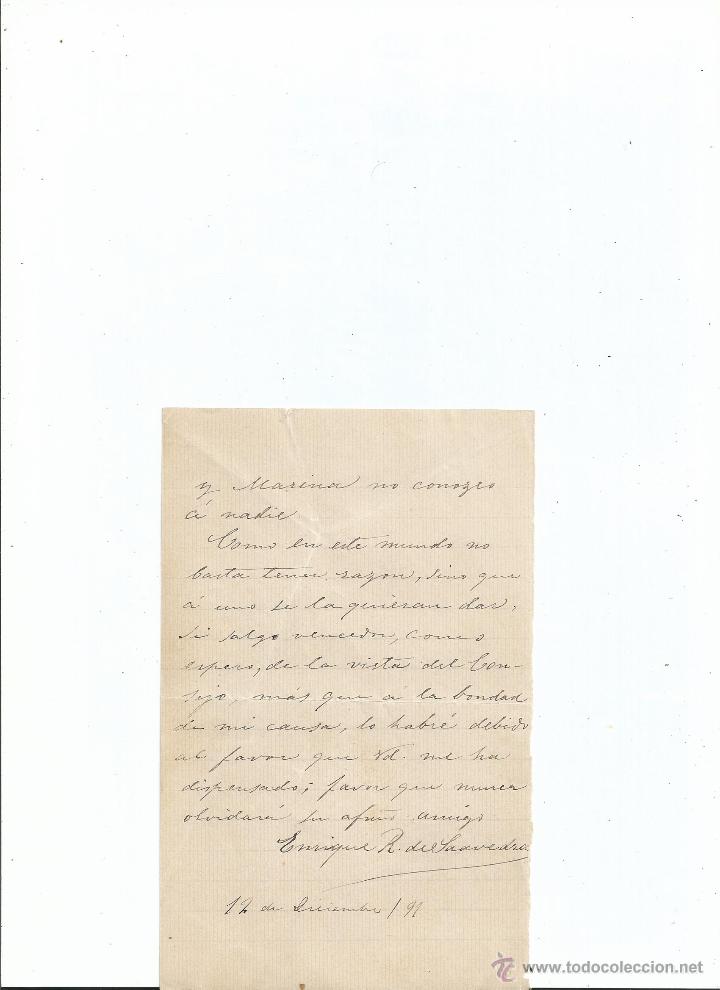 y Marina no conozco
á nadie
Como en este mundo no
basta tener razon, sino que
á uno se la quieran dar,
si salgo vencedor, como
espero, de la vista del Con-
sejo, más que a la bondad
de mi causa, lo habré debido
al favor que Vd. me ha
dispensado; favor que nunca
olvidará su afmo amigo
Enrique R. de Saavedra
12 de Diciembre /91
www.todocoleccion.net